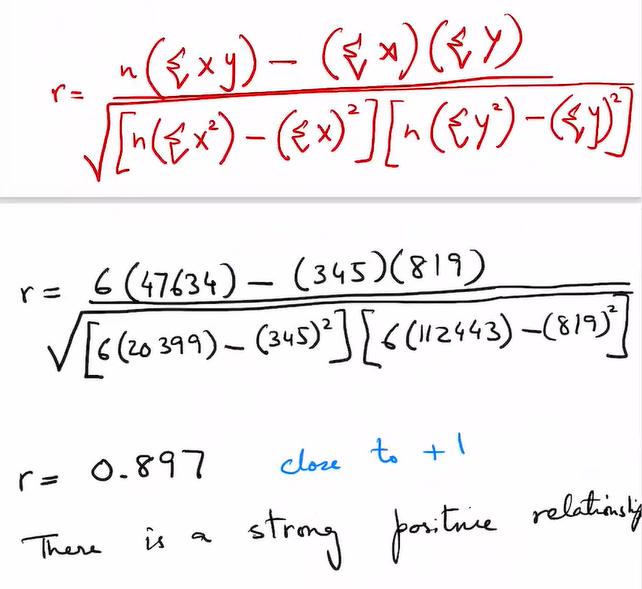 r = n(Σxy) − (Σx)(Σy) / √[n(Σx²) − (Σx)²][n(Σy²) − (Σy)²]
r = 6(47634) − (345)(819) / √[6(20399) − (345)²][6(112443) − (819)²]
r = 0.897 close to +1
There is a strong positive relationship